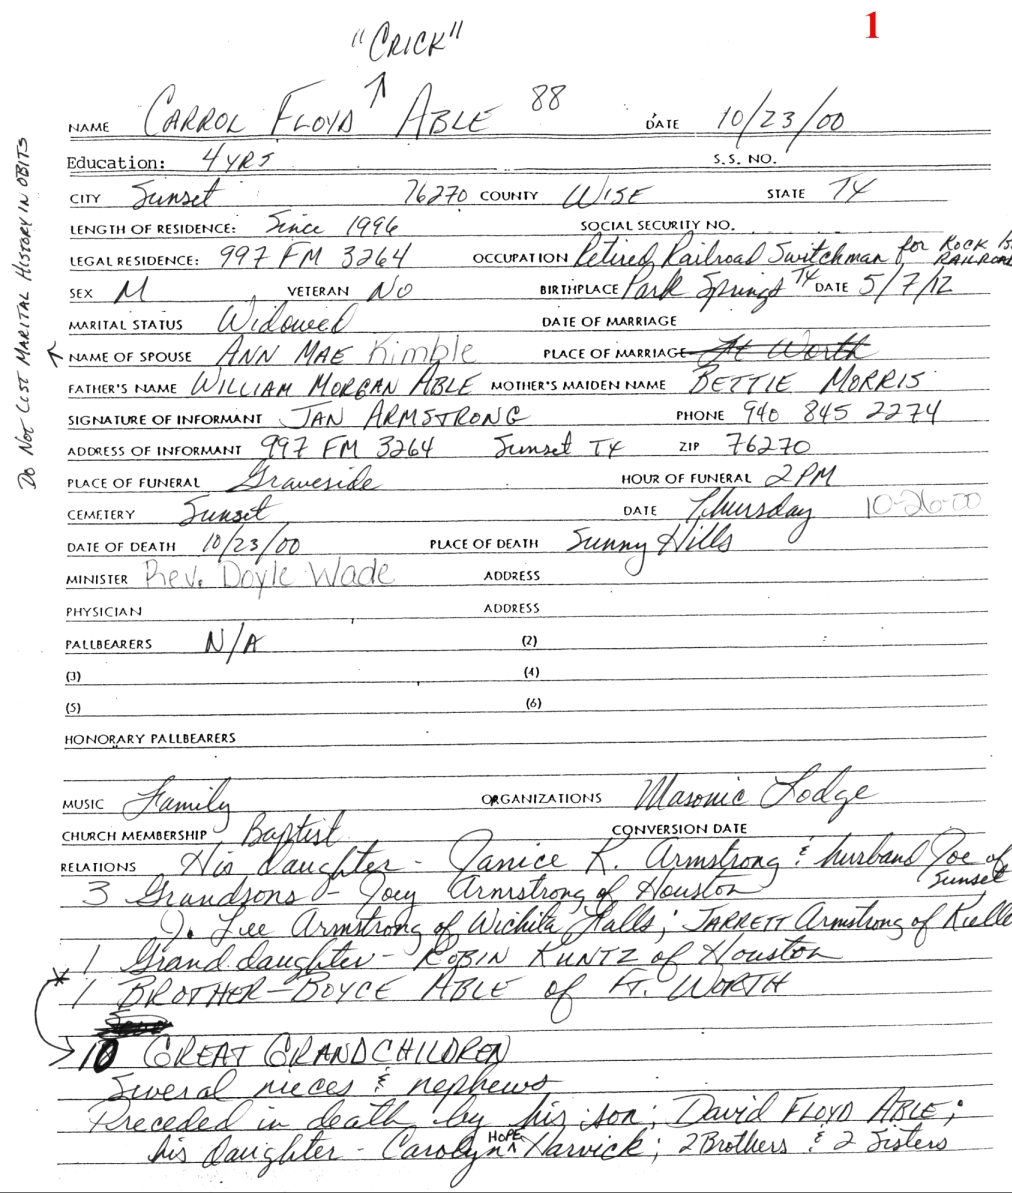 1
"CRICK"
NAME CARROL FLOYD ABLE 88 DATE 10/23/00
Education: 4 YRS S.S. NO.
CITY Sunset 76270 COUNTY WISE STATE TX
LENGTH OF RESIDENCE: Since 1996 SOCIAL SECURITY NO.
LEGAL RESIDENCE: 997 FM 3264 OCCUPATION Retired Railroad Switchman for ROCK IS
RAILROAD
SEX M VETERAN NO BIRTHPLACE Park Springs TX DATE 5/7/12
MARITAL STATUS Widowed DATE OF MARRIAGE
NAME OF SPOUSE ANN MAE Kimble PLACE OF MARRIAGE Ft Worth
DO NOT LIST MARITAL HISTORY IN OBITS
FATHER'S NAME WILLIAM MORGAN ABLE MOTHER'S MAIDEN NAME BETTIE MORRIS
SIGNATURE OF INFORMANT JAN ARMSTRONG PHONE 940 845 2274
ADDRESS OF INFORMANT 997 FM 3264 Sunset TX ZIP 76270
PLACE OF FUNERAL Graveside HOUR OF FUNERAL 2 PM
CEMETERY Sunset DATE Thursday 10-26-00
DATE OF DEATH 10/23/00 PLACE OF DEATH Sunny Hills
MINISTER Rev. Doyle Wade ADDRESS
PHYSICIAN ADDRESS
PALLBEARERS N/A (2)
(3) (4)
(5) (6)
HONORARY PALLBEARERS
MUSIC Family ORGANIZATIONS Masonic Lodge
CHURCH MEMBERSHIP Baptist CONVERSION DATE
RELATIONS His daughter - Janice K. Armstrong & husband Joe of
Sunset
3 Grandsons - Joey Armstrong of Houston
J. Lee Armstrong of Wichita Falls; JARRETT Armstrong of Kelle
1 Grand daughter - ROBIN KUNTZ of Houston
* 1 BROTHER - BOYCE ABLE of FT. WORTH
10 GREAT GRANDCHILDREN
Several nieces & nephews
Preceded in death by his son; David FLOYD ABLE;
his daughter - Carolyn HOPE Harvick; 2 Brothers & 2 Sisters